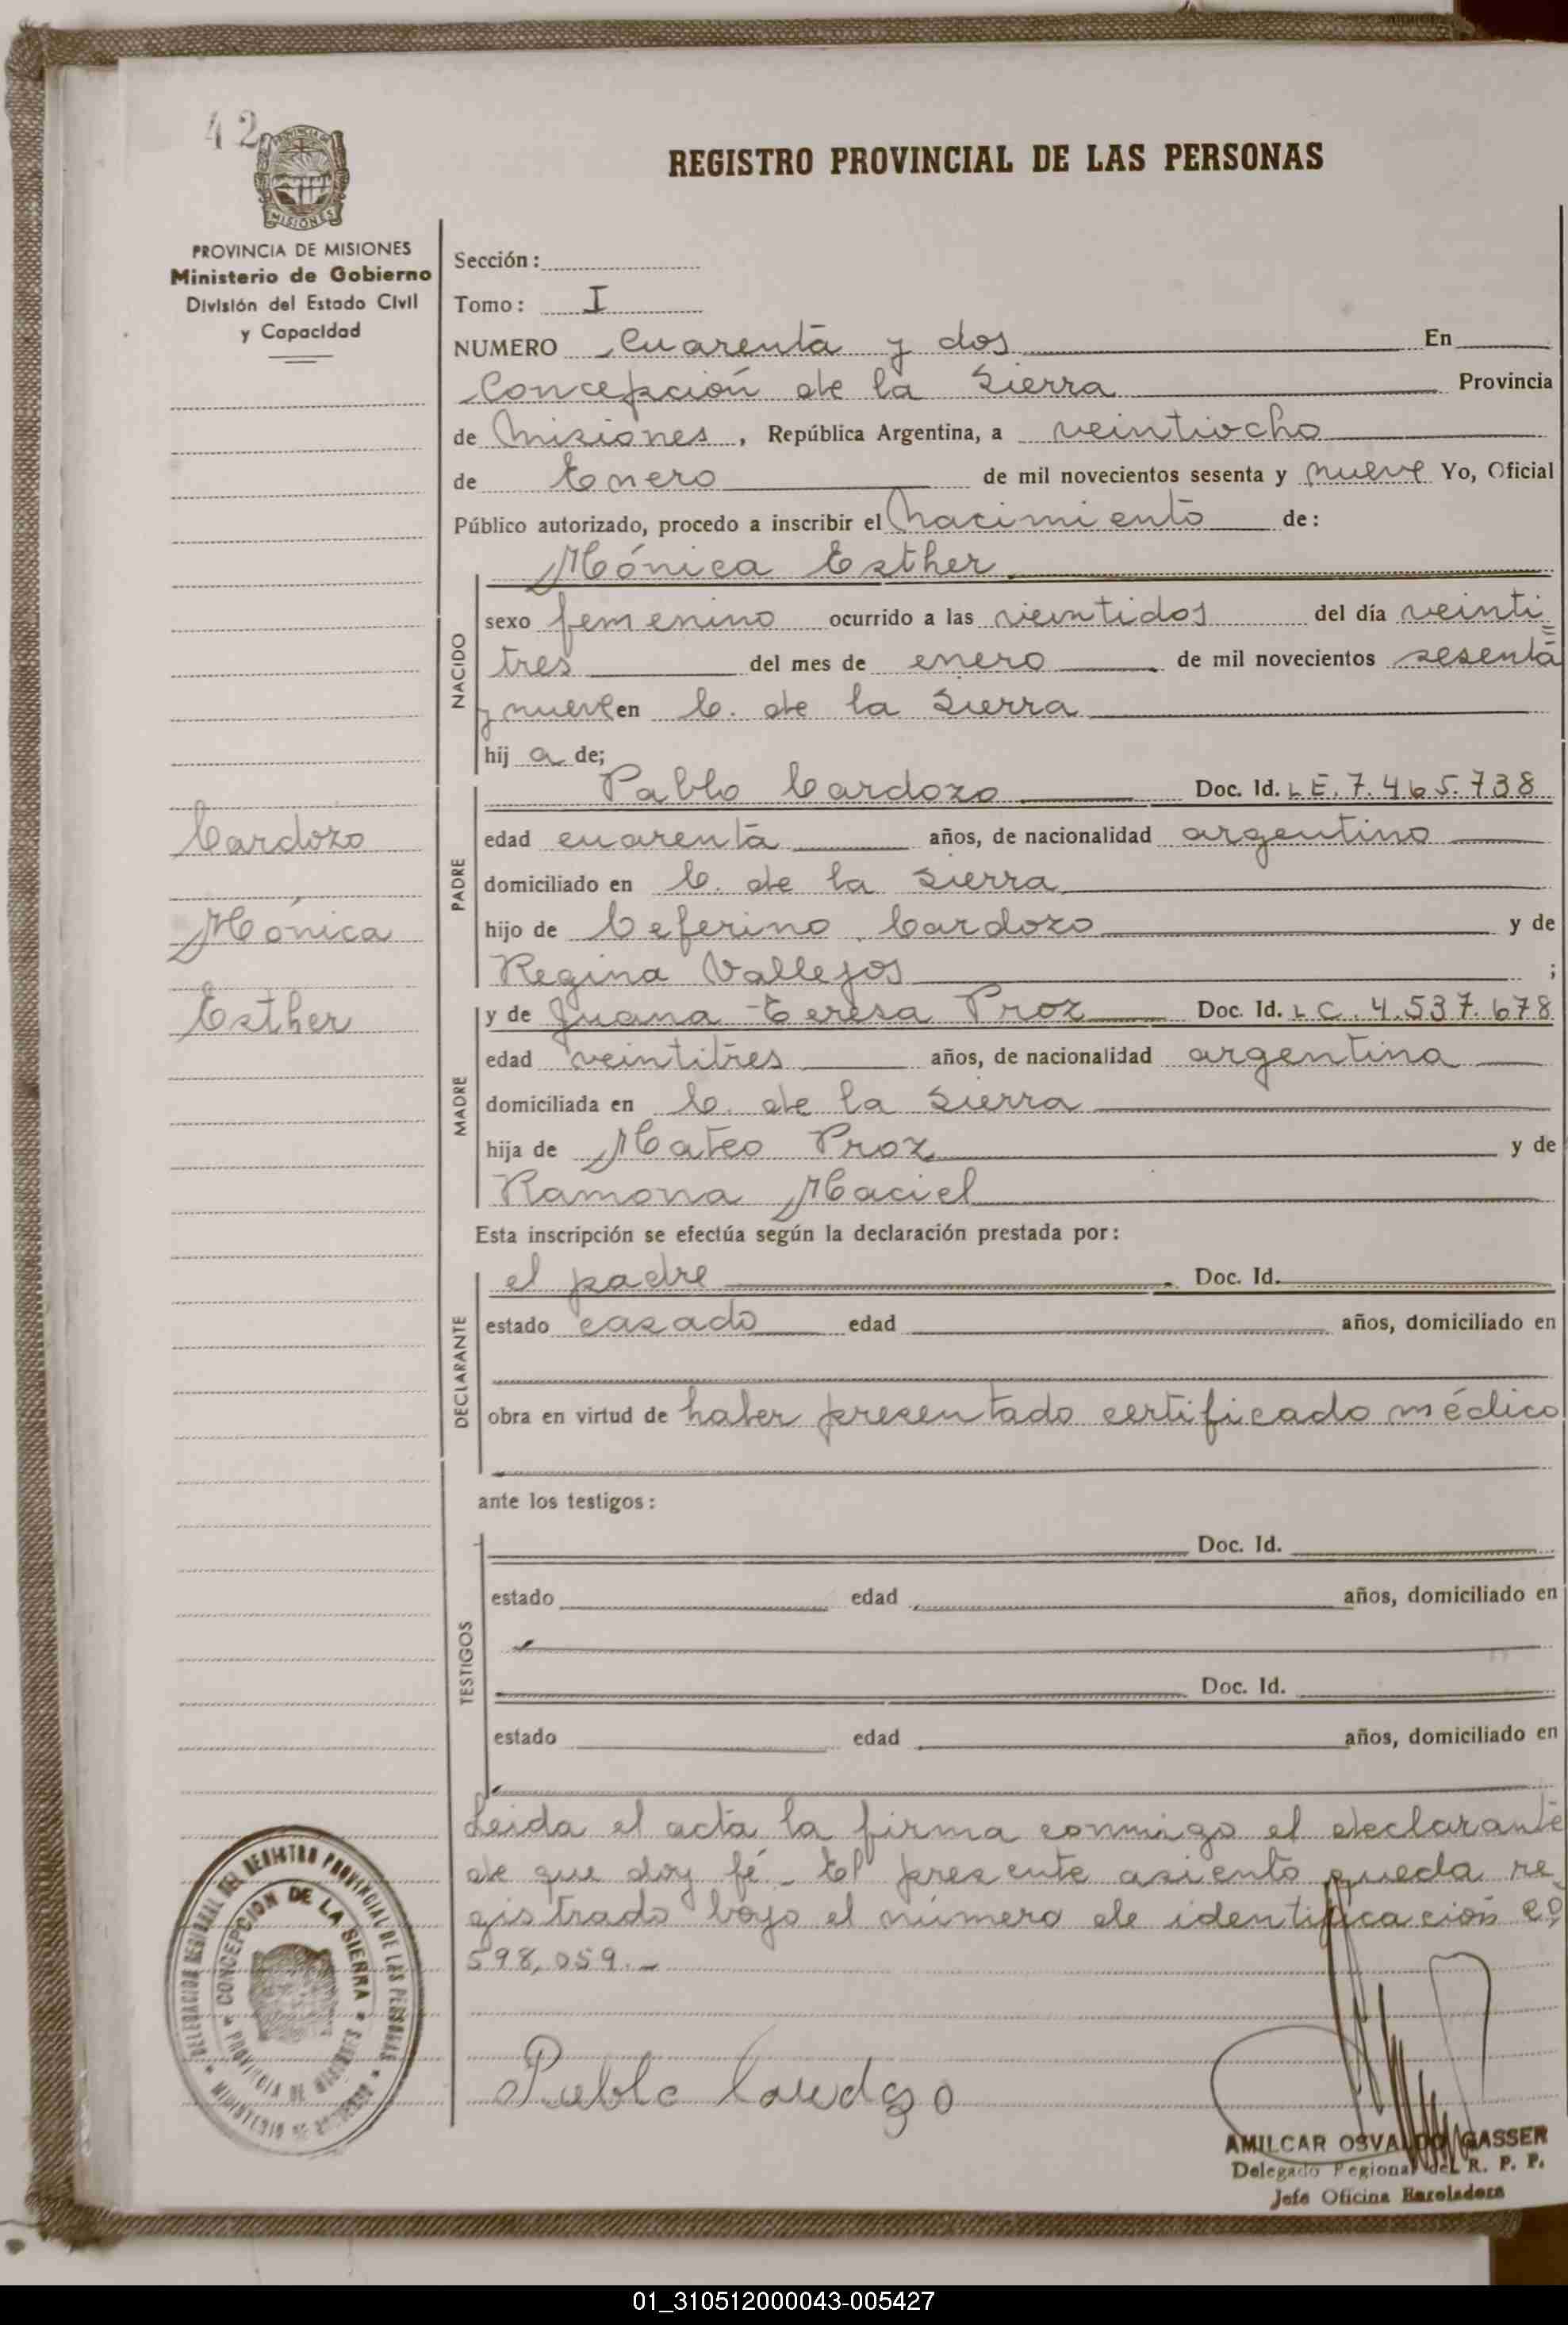 42
PROVINCIA DE
MISIONES
PROVINCIA DE MISIONES
Ministerio de Gobierno
División del Estado Civil
y Capacidad
REGISTRO PROVINCIAL DE LAS PERSONAS
Sección:
Tomo: I
NUMERO Cuarenta y dos En
Concepción de la Sierra Provincia
de Misiones, República Argentina, a veintiocho
de Enero de mil novecientos sesenta y nueve Yo, Oficial
Público autorizado, procedo a inscribir el Nacimiento de:
Mónica Esther
NACIDO
sexo femenino ocurrido a las veintidos del día veinti=
tres del mes de enero de mil novecientos sesenta
y nueve en C. de la Sierra
hij a de;
Cardozo
Mónica
Esther
PADRE
Pablo Cardozo Doc. Id. L E. 7.465.738
edad cuarenta años, de nacionalidad argentino
domiciliado en C. de la Sierra
hijo de Ceferino Cardozo y de
Regina Vallejos ;
MADRE
y de Juana Teresa Proz Doc. Id. L C. 4.537.678
edad veintitres años, de nacionalidad argentina
domiciliada en C. de la Sierra
hija de Mateo Proz y de
Ramona Maciel
Esta inscripción se efectúa según la declaración prestada por:
DECLARANTE
el padre Doc. Id.
estado casado edad años, domiciliado en
obra en virtud de haber presentado certificado médico
ante los testigos:
TESTIGOS
Doc. Id.
estado edad años, domiciliado en
Doc. Id.
estado edad años, domiciliado en
Leida el acta la firma conmigo el declarante
de que doy fé. El presente asiento queda re
gistrado bajo el número de identificación
598,059.-
DELEGACION REGIONAL DEL REGISTRO PROVINCIAL DE LAS PERSONAS
* MINISTERIO DE GOBIERNO *
CONCEPCION DE LA SIERRA
* PROVINCIA DE MISIONES *
Pablo Cardozo
AMILCAR OSVALDO GASSER
Delegado Regional del R. P. P.
Jefe Oficina Enroladora
01_310512000043-005427